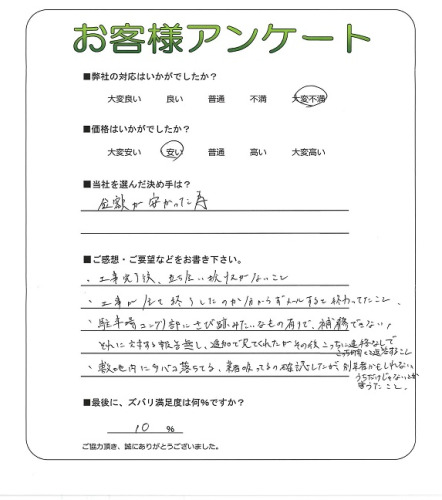 お客様アンケート
■弊社の対応はいかがでしたか？
大変良い 良い 普通 不満 大変不満
■価格はいかがでしたか？
大変安い 安い 普通 高い 大変高い
■当社を選んだ決め手は？
金額が安かった事
■ご感想・ご要望などをお書き下さい。
・工事完了後、立ち会い がないこと
・工事が全て終了したのか分からずメールすると終わってたこと、
・駐車場コンクリ部にさび跡みたいなもの有りで、補修できない、
それに対する報告無し、追加で見てくれたがその後こっちに連絡なしで
こっちから連絡すること
・敷地内にタバコ落ちてる、 吸ってるの確認したが、別業者かもしれない、
うちだけじゃないとか
言うたこと。
■最後に、ズバリ満足度は何％ですか？
10 ％
ご協力頂き、誠にありがとうございました。